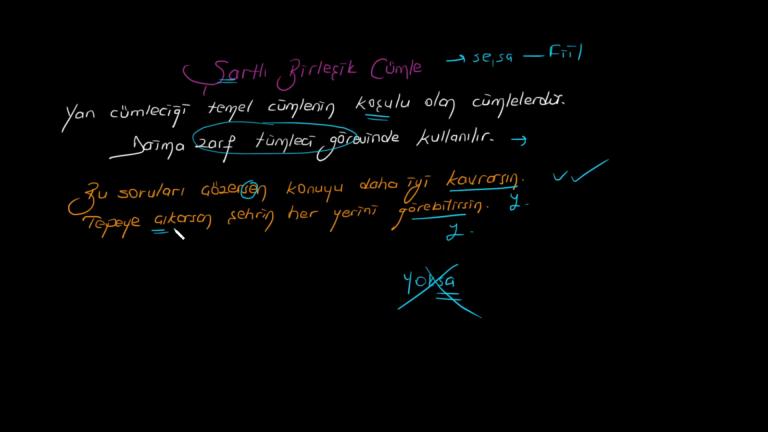 Şartlı Birleşik Cümle → se,sa — Fiil
Yan cümleciği temel cümlenin koşulu olan cümlelerdir.
Daima zarf tümleci görevinde kullanılır. →
Bu soruları çözersen konuyu daha iyi kavrarsın. y.
Tepeye çıkarsan şehrin her yerini görebilirsin.
y.
yoksa